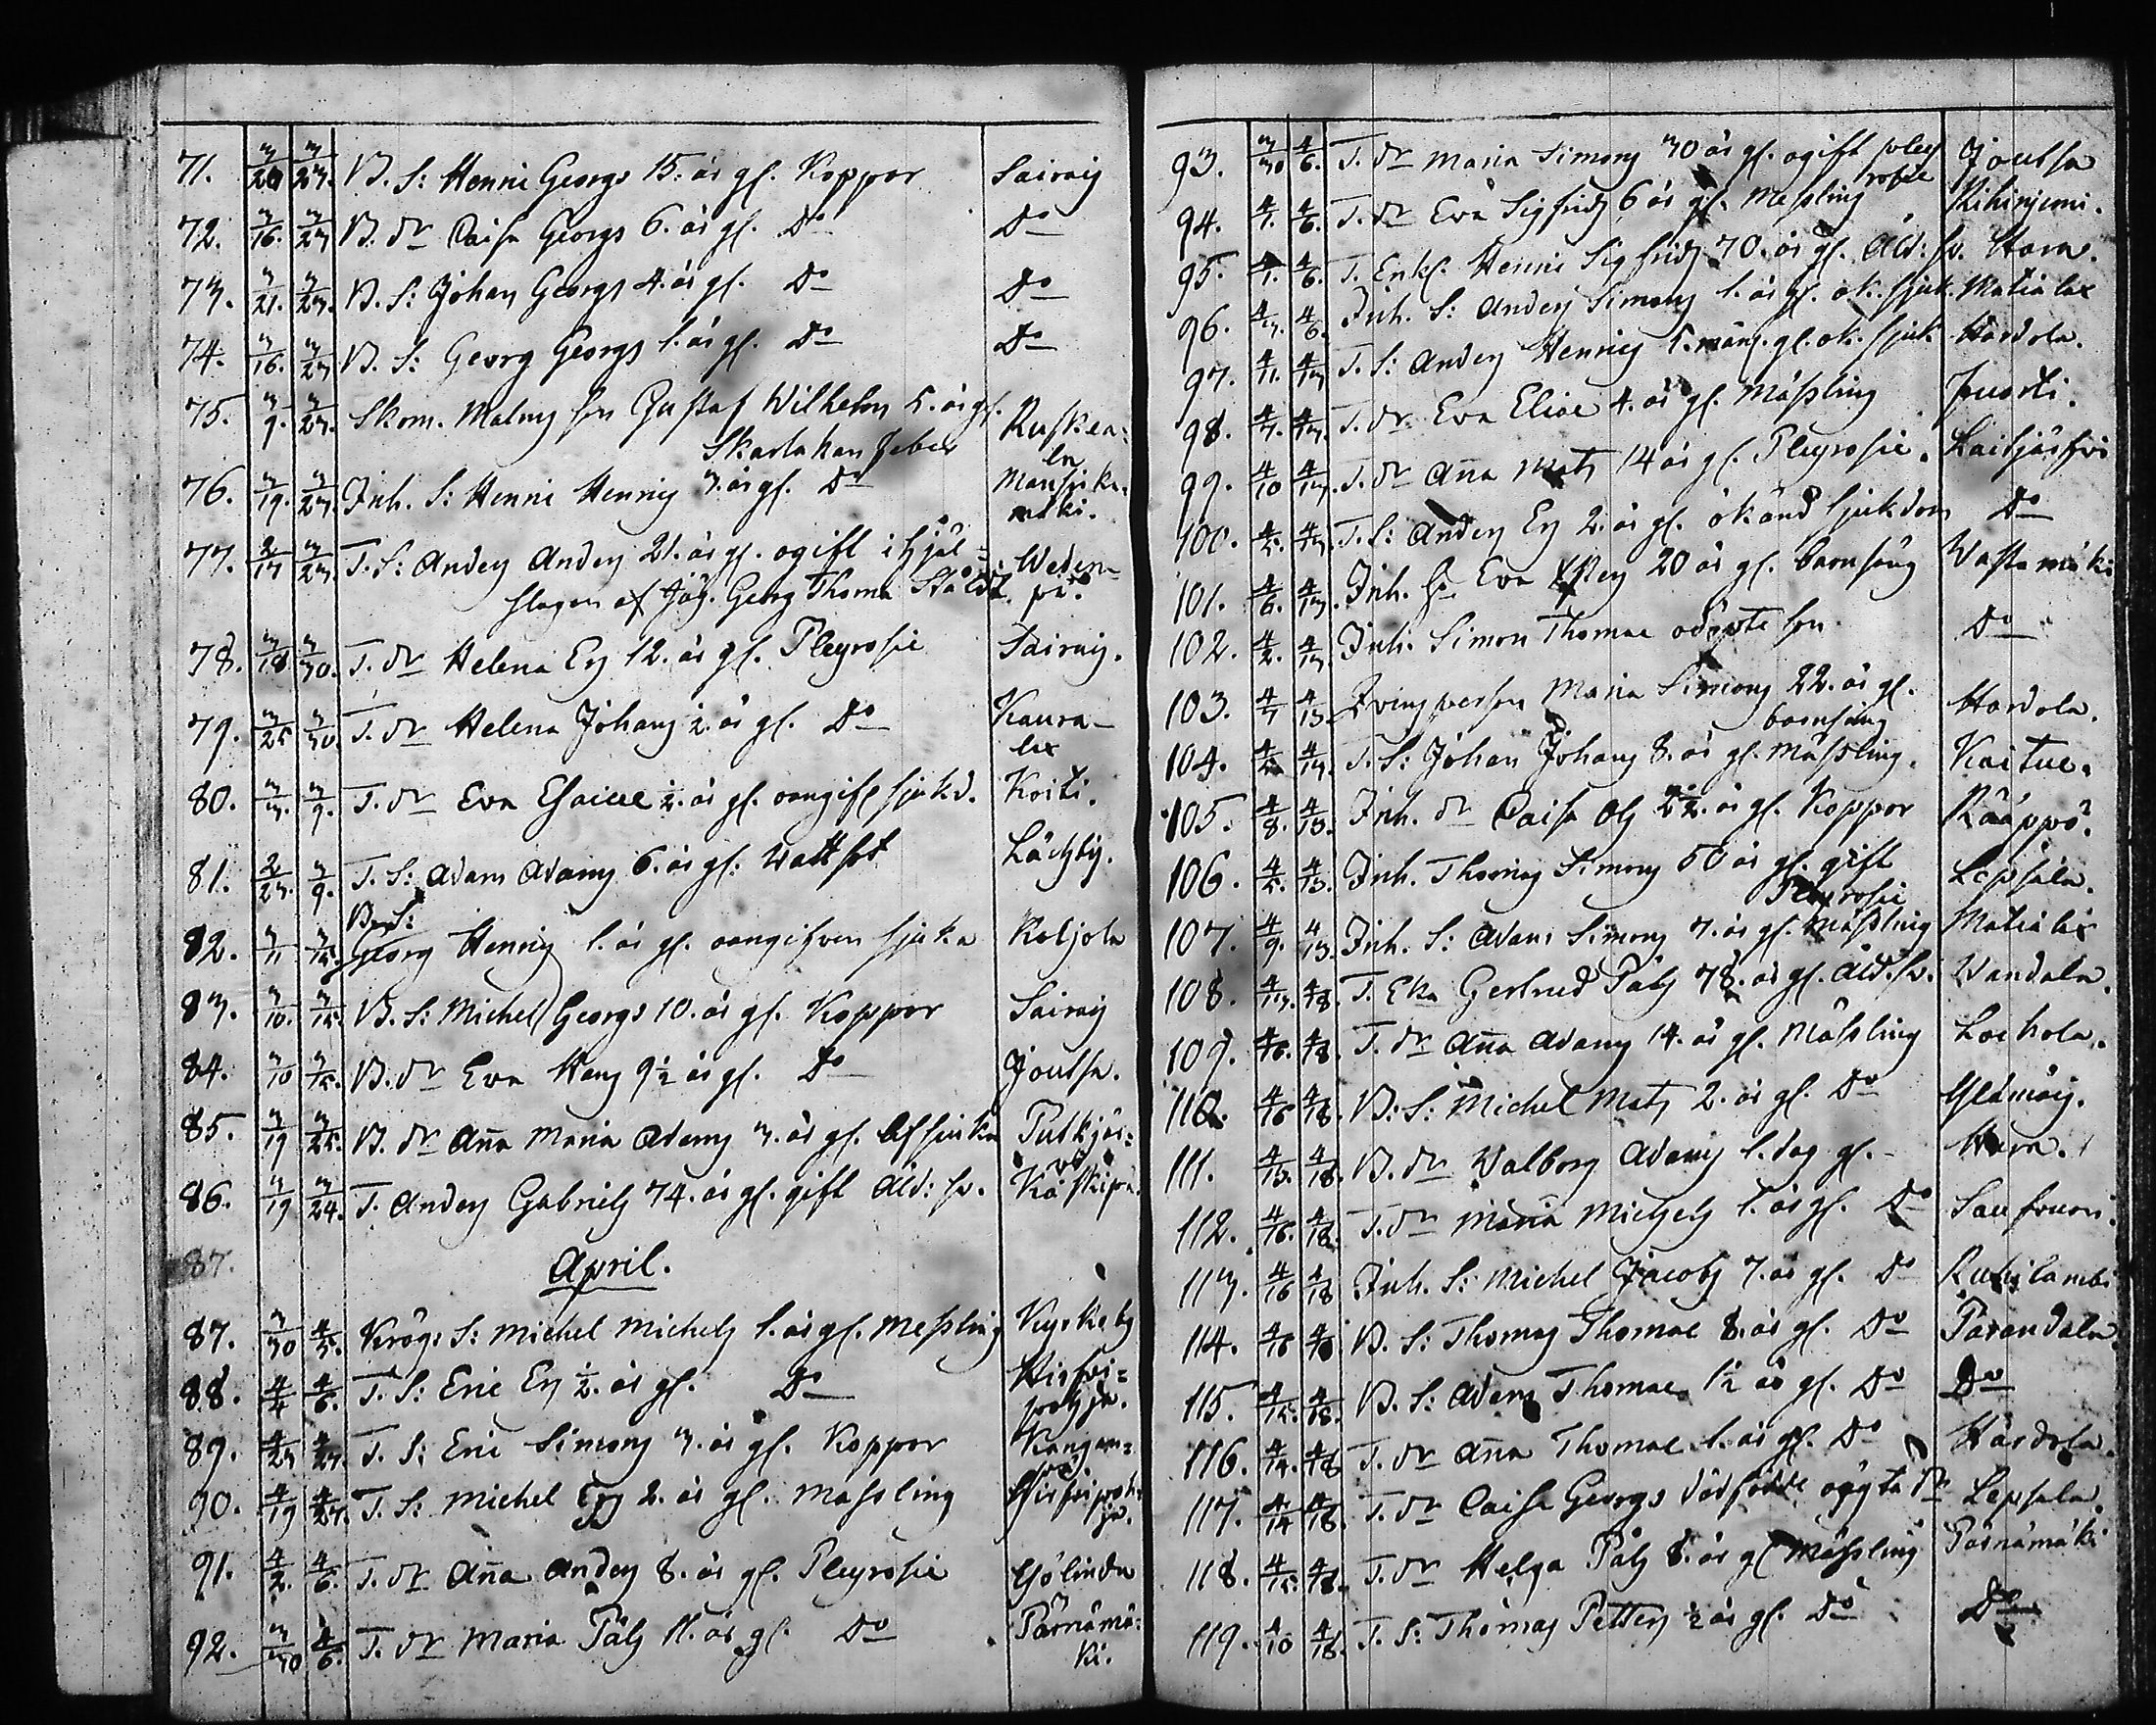 71. 3/20 3/23. B. S: Henric Georgs 15. år gl. Koppor Sairaij
72. 3/16. 3/23 B. dr Caisa Georgs 6. år gl. Do Do
73. 3/21. 3/23. B. S: Johan Georgs 4. år gl. Do Do
74. 3/16. 3/23 B. S: Georg Georgs 1. år gl. Do Do
75. 3/9. 3/23. Skom. Malms son Gustaf Wilhelm 5. år gl.
Skarlakan feber Ruskea=
la
76. 3/19. 3/23 Inh. S: Henric Henrics 3. år gl. Do Mansika-
mäki.
77. 2/17 3/23 T. S: Anders Anders 21. år gl. ogift ihjäl=
slagen af Jäg. Georg Thomæ
78. 3/18 3/30. T. dr Helena Ers 12. år gl. Pleyrosie Sairaij.
79. 3/25 3/30. T. dr Helena Johans ½. år gl. Do Kaura-
lax
80. 3/3. 3/9. T. dr Eva Esaiæ ½. år gl. oangif. sjukd. Koiti.
81. 2/23. 3/9. T. S: Adam Adams 6. år gl: Wattsot
82. 3/11 3/15. B. S:
Georg Henrics 1. år gl. oangifven sjuka Koljola
83. 3/10. 3/15. B. S: Michel Georgs 10. år gl. Koppor Sairaij
84. 3/10 3/15. B. dr Eva Hans 9½ år gl. Do Joutsa.
85. 3/19 3/25. B. dr Aña Maria Adams 3. år gl. Putkjär=
vi
86. 3/19 3/24. T. Anders Gabriels 74. år gl. gift Åld: sv.
87.
April.
87. 3/30 4/5. Krög: S: Michel Michels 1. år gl. Messling Kyrkoby
88. 4/4 4/6. T. S: Eric Ers ½. år gl. Do Hirsi=
pohja.
89. T. S: Eric Simons 3. år gl. Koppor Kangas=
90. T. S: Michel Ers 2. år gl. Mässling Hirsipoh=
ja.
91. 4/2. 4/6. T. dr Aña Anders 8. år gl. Pleyrosie
92. 3/30 4/6. T. dr Maria Påls 11. år gl. Do Pärnämä=
ki.
93. 3/30 4/6. T. dr Maria Simons 30 år gl. ogift pley
rosie Joutsa
94. 4/1. 4/6. T. dr Eva Sigfrids 6 år gl. Messling Kihinjemi.
95. 4/1. 4/6. T. Enkl. Henric Sigfrids 70. år gl. Åld: sv.
96. 4/3. 4/6. Inh. S: Anders Simons 1. år gl. ok. sjuk. Matialax
97. 4/11. 4/13 T. S: Anders Henrics 5. mån. gl. ok. sjuk Hardola.
98. 4/7. 4/13. T. dr Eva Eliæ 4. år gl. Mässling Juorti.
99. 4/10 4/13. T. dr Aña Mats 14 år gl. Pleyrosie. Laitjärfvi
100. 4/5. 4/13. T. S: Anders Ers 2. år gl. okänd sjukdom Do
101. 4/6. 4/13. Inh. Eva 20 år gl. barnsäng Wastamäki
102. 4/2. 4/13 Inh. Simon Thomæ odöpte son Do
103. 4/7 4/13. Inhysperson Maria Simons 22. år gl.
barnsäng Hardola.
104. 4/13. T. S: Johan Johans 8. år gl. Mässling. Kaitue.
105. 4/8. 4/13. Inh. dr Caisa Ols 2½. år gl. Koppor Rääppö.
106. 4/5. 4/13. Inh. Thomas Simons 50 år gl. gift
Pleyrosie Lepsala.
107. 4/9. 4/13. Inh. S: Adam Simons 7. år gl. Mässling Matialax
108. 4/13. 4/18. T. Eka Gertrud Påls 78. år gl. Åld. sv. Wandala.
109. 4/16. 4/18. T. dr Aña Adams 14. år gl. Mässling Lochola.
110. 4/16 4/18. B: S: Michel Mats 2. år gl. Do
111. 4/15. 4/18. B. dr Walborg Adams 1. dag gl. -
112. 4/16. 4/18. T. dr Maria Michels 1. år gl. Do Saufsuori.
113. 4/16 4/18 Inh. S: Michel Jacobs 7. år gl. Do
114. 4/16 4/18 B. S: Thomas Thomæ 8. år gl. Do Parandala
115. 4/15. 4/18. B. S: Adam Thomæ 1½ år gl. Do Do
116. 4/14. 4/18 T. dr Aña Thomæ 1. år gl. Do Hardola.
117. 4/14 4/18. T. dr Caisa Georgs dödfödde oägta dr Lepsala.
118. 4/15. 4/18. T. dr Helga Påls 8. år gl Mässling Pärnämäki
119. 4/10 4/18. T. S: Thomas Petters ½ år gl. Do Do